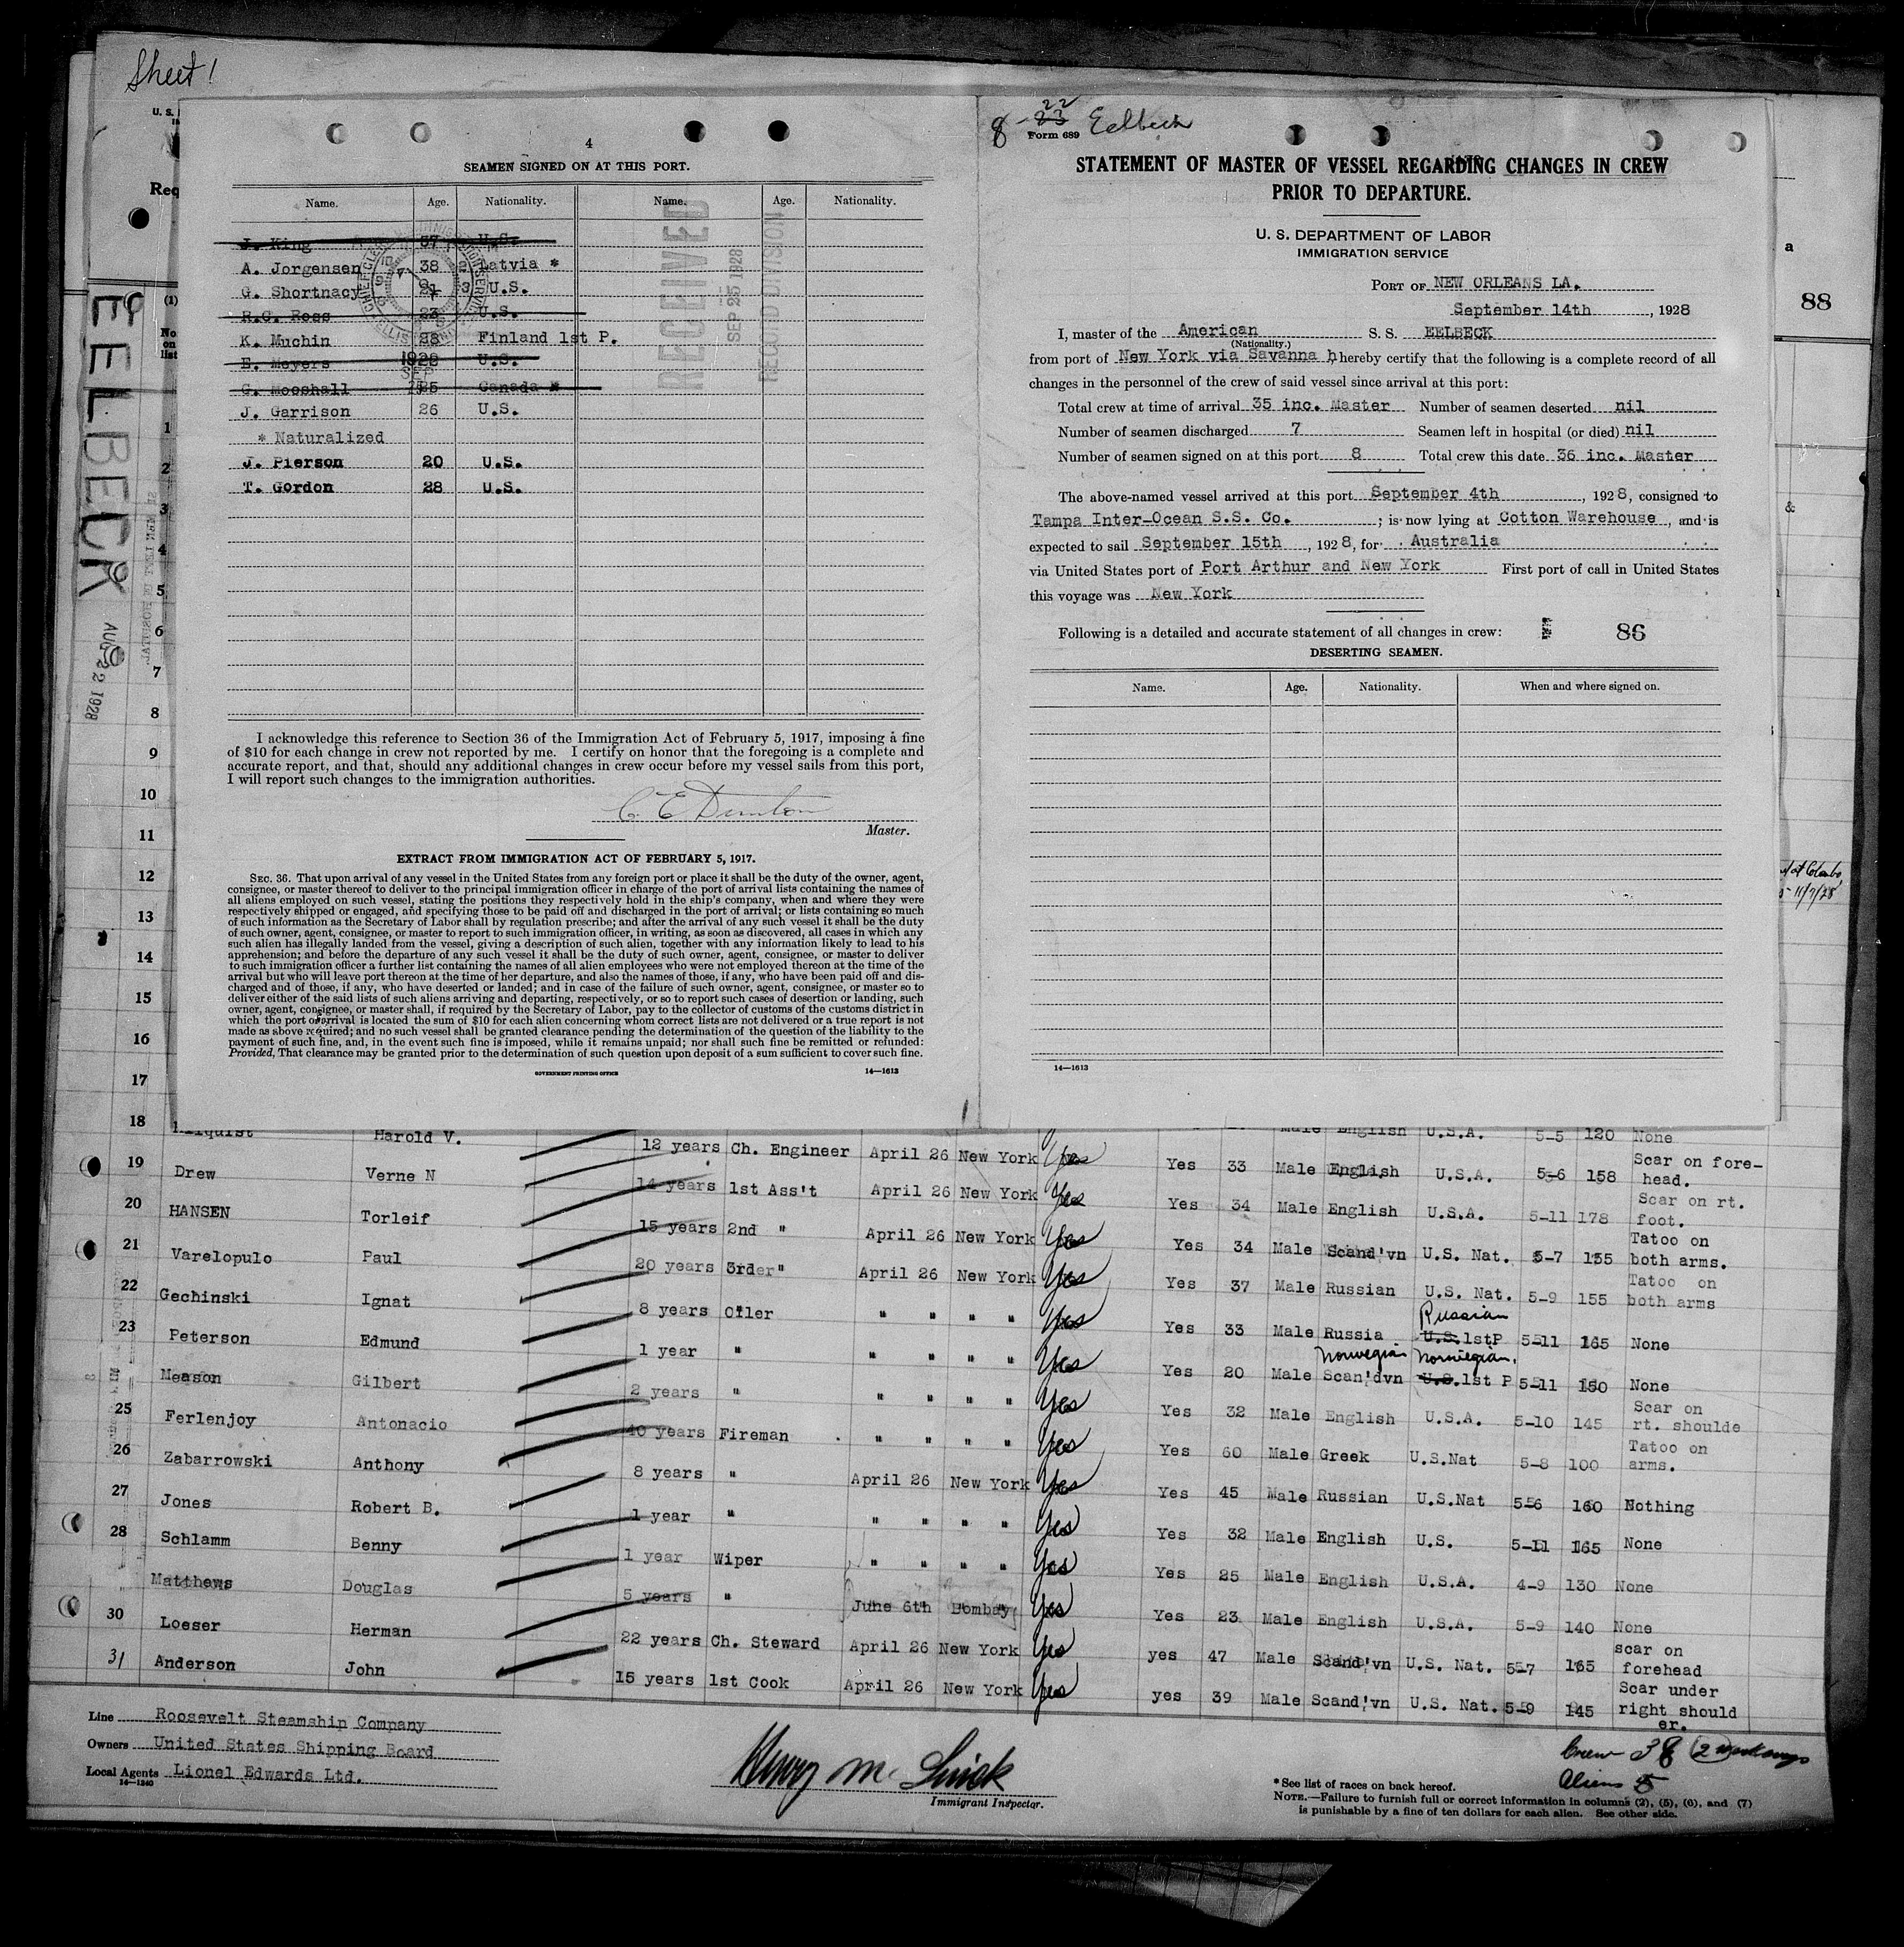 Sheet 1
U. S.
Req
EELBECK
AUG 22 1928
4
SEAMEN SIGNED ON AT THIS PORT.
Name. Age. Nationality. Name. Age. Nationality.
J. King 37 U.S.
A. Jorgensen 38 Latvia *
G. Shortnacy 21 U.S.
R.C. Ross 23 U.S.
K. Muchin 28 Finland 1st P.
E. Meyers 28 U.S.
G. Mooshall 25 Canada *
J. Garrison 26 U.S.
* Naturalized
J. Pierson 20 U.S.
T. Gordon 28 U.S.
RECEIVED
SEP 25 1928
RECORD DIVISION
I acknowledge this reference to Section 36 of the Immigration Act of February 5, 1917, imposing a fine
of $10 for each change in crew not reported by me. I certify on honor that the foregoing is a complete and
accurate report, and that, should any additional changes in crew occur before my vessel sails from this port,
I will report such changes to the immigration authorities.
C E Dunton
Master.
EXTRACT FROM IMMIGRATION ACT OF FEBRUARY 5, 1917.
SEC. 36. That upon arrival of any vessel in the United States from any foreign port or place it shall be the duty of the owner, agent,
consignee, or master thereof to deliver to the principal immigration officer in charge of the port of arrival lists containing the names of
all aliens employed on such vessel, stating the positions they respectively hold in the ship's company, when and where they were
respectively shipped or engaged, and specifying those to be paid off and discharged in the port of arrival; or lists containing so much
of such information as the Secretary of Labor shall by regulation prescribe; and after the arrival of any such vessel it shall be the duty
of such owner, agent, consignee, or master to report to such immigration officer, in writing, as soon as discovered, all cases in which any
such alien has illegally landed from the vessel, giving a description of such alien, together with any information likely to lead to his
apprehension; and before the departure of any such vessel it shall be the duty of such owner, agent, consignee, or master to deliver
to such immigration officer a further list containing the names of all alien employees who were not employed thereon at the time of the
arrival but who will leave port thereon at the time of her departure, and also the names of those, if any, who have been paid off and dis-
charged and of those, if any, who have deserted or landed; and in case of the failure of such owner, agent, consignee, or master so to
deliver either of the said lists of such aliens arriving and departing, respectively, or so to report such cases of desertion or landing, such
owner, agent, consignee, or master shall, if required by the Secretary of Labor, pay to the collector of customs of the customs district in
which the port of arrival is located the sum of $10 for each alien concerning whom correct lists are not delivered or a true report is not
made as above required; and no such vessel shall be granted clearance pending the determination of the question of the liability to the
payment of such fine, and, in the event such fine is imposed, while it remains unpaid; nor shall such fine be remitted or refunded:
Provided, That clearance may be granted prior to the determination of such question upon deposit of a sum sufficient to cover such fine.
GOVERNMENT PRINTING OFFICE 14—1613
8 - 23 22 Eelbeck
Form 689
STATEMENT OF MASTER OF VESSEL REGARDING CHANGES IN CREW
PRIOR TO DEPARTURE.
U. S. DEPARTMENT OF LABOR
IMMIGRATION SERVICE
PORT OF NEW ORLEANS LA.
September 14th, 1928
I, master of the American S. S. EELBECK
(Nationality.)
from port of New York via Savannah, hereby certify that the following is a complete record of all
changes in the personnel of the crew of said vessel since arrival at this port:
Total crew at time of arrival 35 inc. Master Number of seamen deserted nil
Number of seamen discharged 7 Seamen left in hospital (or died) nil
Number of seamen signed on at this port 8 Total crew this date 36 inc. Master
The above-named vessel arrived at this port September 4th, 1928, consigned to
Tampa Inter-Ocean S.S. Co.; is now lying at Cotton Warehouse, and is
expected to sail September 15th, 1928, for Australia
via United States port of Port Arthur and New York First port of call in United States
this voyage was New York
Following is a detailed and accurate statement of all changes in crew: 86
DESERTING SEAMEN.
Name. Age. Nationality. When and where signed on.
14—1613
a
88
&
18 Harold V. 12 years Ch. Engineer April 26 New York Yes Male English U.S.A. 5-5 120 None
19 Drew Verne N 14 years 1st Ass't April 26 New York Yes Yes 33 Male English U.S.A. 5-6 158 Scar on fore-
head.
20 HANSEN Torleif 15 years 2nd " April 26 New York Yes Yes 34 Male English U.S.A. 5-11 178 Scar on rt.
foot.
21 Varelopulo Paul 20 years 3rder" April 26 New York Yes Yes 34 Male Scand'vn U.S. Nat. 5-7 135 Tatoo on
both arms.
22 Gechinski Ignat 8 years Oiler " " " " Yes Yes 37 Male Russian U.S. Nat. 5-9 155 Tatoo on
both arms
Russian
23 Peterson Edmund 1 year " " " " " Yes Yes 33 Male Russia U.S. 1stP 5-11 165 None
Norwegian Norwegian.
Meason Gilbert 2 years " " " " " Yes Yes 20 Male Scan'dvn U.S. 1st P 5-11 150 None
25 Ferlenjoy Antonacio 40 years Fireman " " " " Yes Yes 32 Male English U.S.A. 5-10 145 Scar on
rt. shoulde
26 Zabarrowski Anthony 8 years " April 26 New York Yes Yes 60 Male Greek U.S.Nat 5-8 100 Tatoo on
arms.
27 Jones Robert B. 1 year " " " " " Yes Yes 45 Male Russian U.S.Nat 5-6 160 Nothing
28 Schlamm Benny 1 year Wiper " " " " Yes Yes 32 Male English U.S. 5-11 165 None
Matthews Douglas 5 years " June 6th Bombay Yes Yes 25 Male English U.S.A. 4-9 130 None
30 Loeser Herman 22 years Ch. Steward April 26 New York Yes Yes 23 Male English U.S.A. 5-9 140 None
31 Anderson John 15 years 1st Cook April 26 New York Yes yes 47 Male Scand'vn U.S. Nat. 5-7 165 scar on
forehead
yes 39 Male Scand'vn U.S. Nat. 5-9 145 Scar under
right should
er.
Line Roosevelt Steamship Company
Owners United States Shipping Board
Local Agents Lionel Edwards Ltd.
14—1240
Immigrant Inspector.
Crew 38 (2 workaways
Aliens 5
* See list of races on back hereof.
NOTE.—Failure to furnish full or correct information in columns (2), (5), (6), and (7)
is punishable by a fine of ten dollars for each alien. See other side.